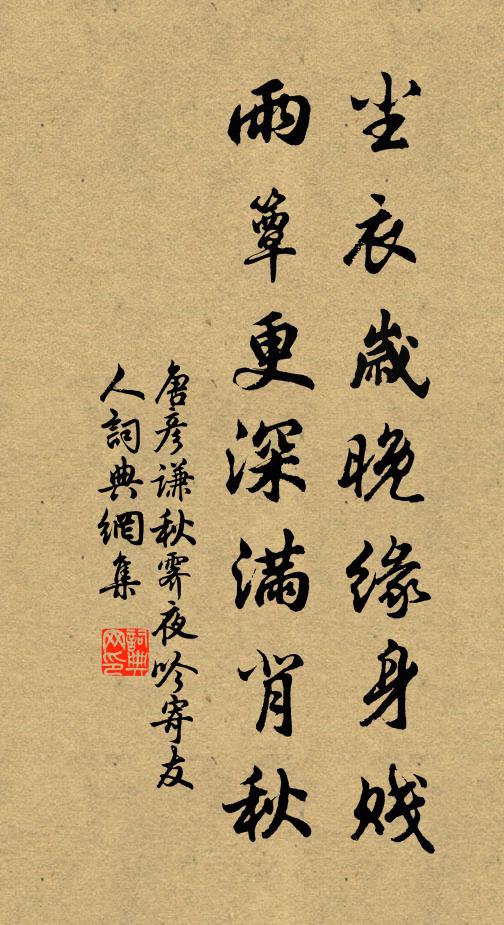 尘衣歲晚緣身賤
雨簟更深滿背秋
唐彥謙秋霽夜吟寄友
人詞典網集
詞典
网印